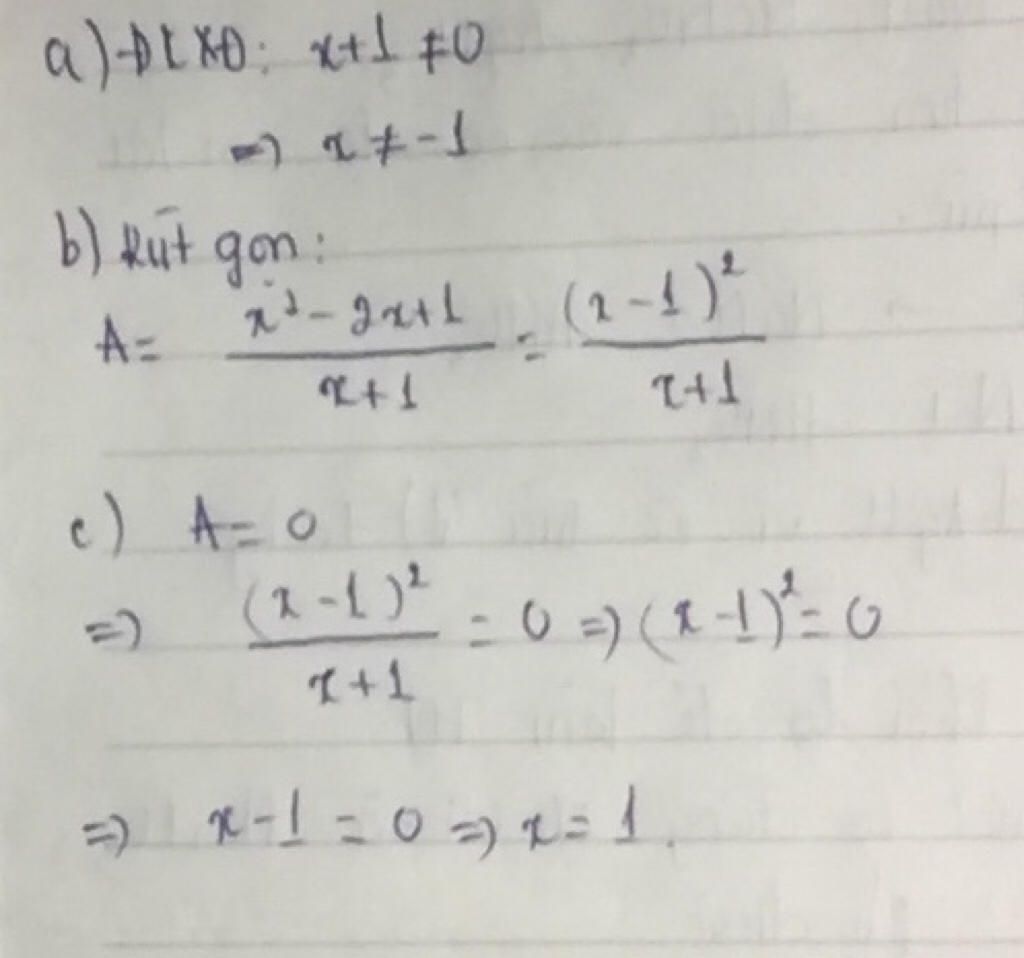 a) ĐKXĐ: x+1 ≠ 0
=> x ≠ -1
b) Rút gọn:
A = (x² - 2x + 1)/(x+1) = (x-1)²/(x+1)
c) A = 0
=> (x-1)²/(x+1) = 0 => (x-1)² = 0
=> x-1 = 0 => x = 1.